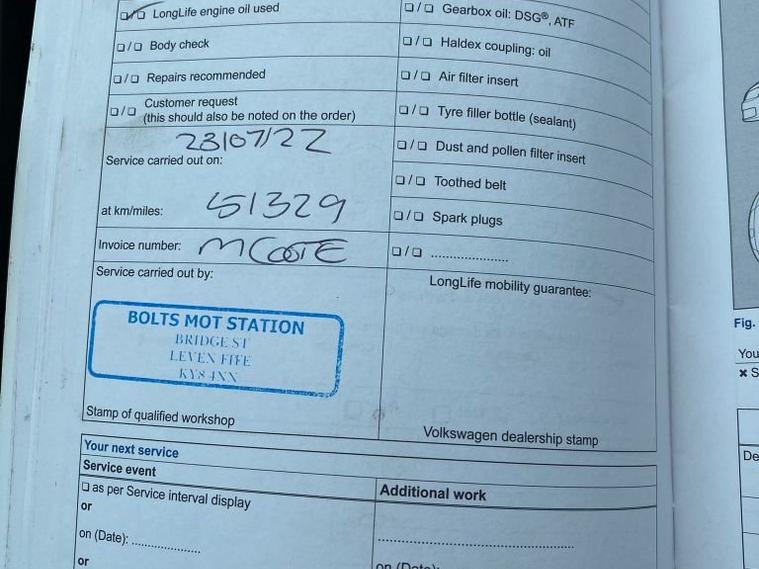 ❏/❏ LongLife engine oil used
❏/❏ Body check
❏/❏ Repairs recommended
❏/❏ Customer request
(this should also be noted on the order)
23/07/22
Service carried out on:
at km/miles: 51329
Invoice number: MCOOTE
Service carried out by:
BOLTS MOT STATION
BRIDGE ST
LEVEN FIFE
KY8 4NX
Stamp of qualified workshop
❏/❏ Gearbox oil: DSG®, ATF
❏/❏ Haldex coupling: oil
❏/❏ Air filter insert
❏/❏ Tyre filler bottle (sealant)
❏/❏ Dust and pollen filter insert
❏/❏ Toothed belt
❏/❏ Spark plugs
❏/❏ ......................
LongLife mobility guarantee:
Volkswagen dealership stamp
Your next service
Service event
❏ as per Service interval display
or
on (Date): ....................
or
Additional work
..................................................
on (Date):
Fig.
You
✖ S
De